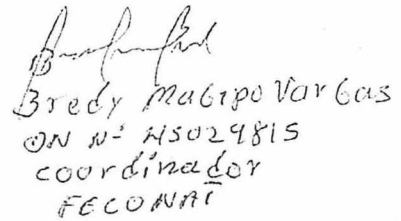 Bredy Magipo Vargas
DN N° 45029815
coordinador
FECONAI